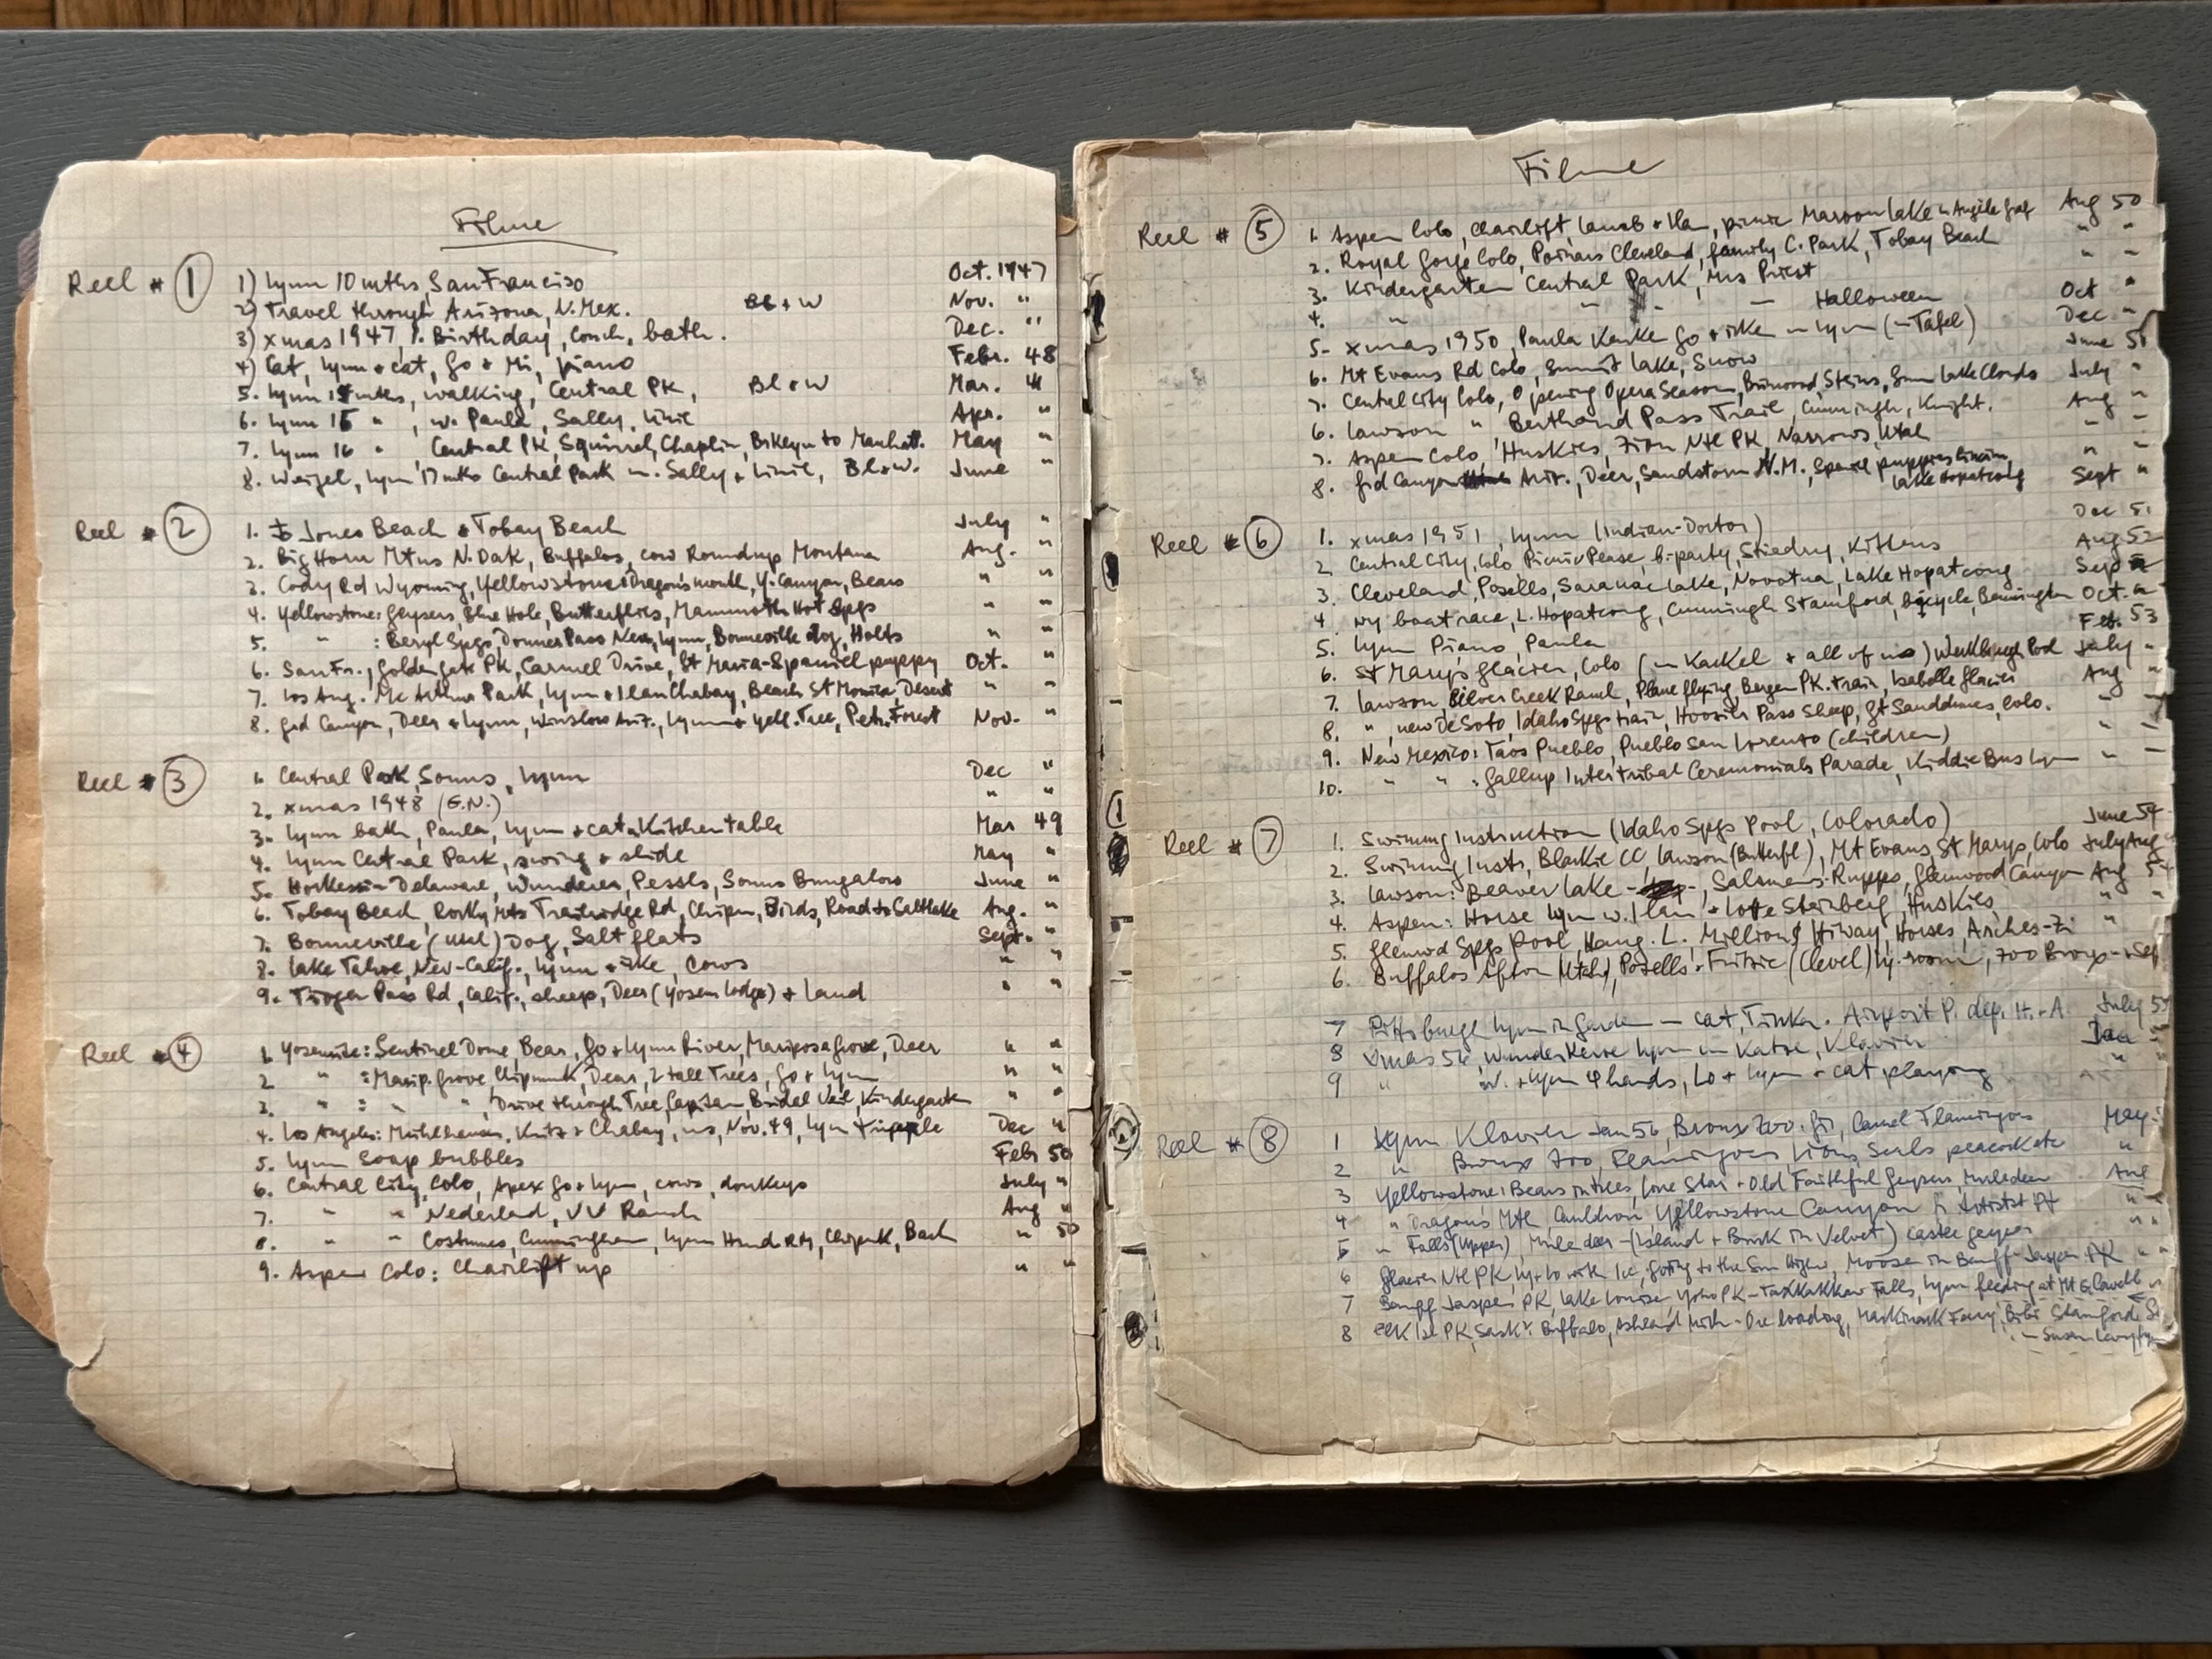 Filme
Reel # 1 1) Lynn 10 mths, San Franciso Oct. 1947
2) Travel through Arizona, N. Mex. Bl + W Nov. "
3) Xmas 1947, 1. Birthday, Couch, bath. Dec. "
4) Cat, Lynn + cat, Go + Mi, piano Febr. 48
5. Lynn mths, walking, Central PK, Bl + W Mar. "
6. Lynn 15 " , w. Paula, Sally, Linie Apr. "
7. Lynn 16 " , Central PK, Squirrel, Chaplin, to Manhatt. May "
8. Weigel, Lynn 17 mths Central Park m. Sally + Linie, Bl + W. June "
Reel # 2 1. Jones Beach + Tobay Beach July "
2. Big Horn Mtns N. Dak, Buffalos, Cow Roundup Montana Aug. "
3. Cody Rd Wyoming, Yellowstone: Dragon's mouth, Y. Canyon, Bears " "
4. Yellowstone: Geysers, Blue Hole, Butterflies, Mammoth Hot Spgs " "
5. " : Beryl Spgs, Donner Pass Nev, Lynn, Bonneville dog, Holts " "
6. San Fr., Golden Gate PK, Carmel Drive, St Maria - Spaniel puppy Oct. "
7. Los Ang. Mc Arthur Park, Lynn + Ilan Chabay, Beach St Monica Desert " "
8. Grd Canyon, Deer + Lynn, Winslow Ariz., Lynn + Yell. Tree, Petr. Forest Nov. "
Reel # 3 1. Central Park, Sonns, Lynn Dec "
2. Xmas 1948 (G.N.) " "
3. Lynn bath, Paula, Lynn + cat Kitchentable Mar 49
4. Lynn Central Park, swing + slide May "
5. Delaware, Wunderer, Pessls, Sonns Bungalow June "
6. Tobay Beach, Rocky Mts Trailridge Rd, Chipm, Birds, Road to Saltlake Aug. "
7. Bonneville (Utah) Dog, Salt flats Sept. "
8. Lake Tahoe, Nev-Calif., Lynn + ike, cows " "
9. Tioga Pass Rd, Calif., sheep, Deer (Yosem Lodge) + Land " "
Reel # 4 1. Yosemite: Sentinel Dome, Bear, Go + Lynn River, Mariposa Grove, Deer " "
2 " : Marip. Grove, Chipmunk, Dears, 2 tall Trees, Go + Lynn " "
3. " : " " , Drive through Tree, Capitan, Bridal Veil, Kindergarten " "
4. Los Angeles: Mühlhauser, + Chabay, us, Nov. 49, Lynn Dec "
5. Lynn Soap bubbles Febr 50
6. Central City, Colo, Apex Go + Lynn, cows, donkeys July "
7. " " Nederland, VV Ranch Aug "
8. " " Costumes, Cunningham, Lynn Chipmk, Bach " 50
9. Aspen Colo: Chairlift up " "
Filme
Reel # 5 1. Aspen Colo, Chairlift, Lamb + Ilan, picnic Maroon Lake Aug 50
2. Royal Gorge Colo, Cleveland, family C. Park, Tobay Beach " "
3. Kindergarten Central Park, Mrs Priest " "
4. " " " — Halloween Oct "
5. Xmas 1950, Paula Go + ike Lynn (Tafel) Dec "
6. Mt Evans Rd Colo, Summit Lake, Snow June 51
7. Central City Colo, Opening Opera Season, Steins, Lake Clouds July "
6. Lawson " Berthoud Pass Trail, Cunningh, Knight. Aug "
7. Aspen Colo, Huskies, Zion Ntl PK, Narrows, Utah " "
8. Grd Canyon Ariz., Deer, Sandstorm N.M., Spaniel puppies " "
Lake Hopatcong Sept "
Reel # 6 1. Xmas 1951, Lynn (Indian-Doctor) Dec 51
2 Central City, Colo Picnic Pease, b. party, Stiedry, Kittens Aug 52
3. Cleveland, Posells, Saranac Lake, Novotna, Lake Hopatcong Sep
4 NY boat race, L. Hopatcong, Cunningh Stamford, bicycle Bennington Oct. "
5. Lynn Piano, Paula Feb. 53
6. St Marys Glacier, Colo ( + all of us) July "
7. Lawson Silver Creek Ranch, Plane flying, Bergen PK. train, Isabelle Glacier Aug "
8. " , new DeSoto, Idaho Spgs train, Hoosier Pass Sheep, Gt Sanddunes, Colo. " "
9. New Mexico: Taos Pueblo, Pueblo San Lorenzo (children) " "
10. " " : Gallup Intertribal Ceremonials Parade, Kiddie Bus Lynn " "
Reel # 7 1. Swimmg Instruction (Idaho Spgs Pool, Colorado) June 54
2. Swimmg Instr, Blackie CC, Lawson (Butterfl), Mt Evans, St Marys, Colo July Aug
3. Lawson: Beaver Lake - , Rupps, Glenwood Canyon Aug 54
4. Aspen: Horse Lynn w. Ilan + Lotte Steinberg, Huskies, " "
5. Glenwd Spgs Pool, Hang. L. Million $ Hiway, Horses, Arches - Zi "
6. Buffalos Afton (Utah), Posells - Fritzie (Clevel) Ly. room, Zoo Bronx Sep
7 Pittsburgh Lynn in Garden — cat, Tinka. Airport P. dep. H. + A. July 55
8 Xmas 54, Wunderkerze Lynn m Katze, Klavier Dec
9 " W. + Lynn 4 hands, Lo + Lynn + cat playing "
Reel # 8 1 Lynn Klavier Jan 56, Bronx Zoo. Gi, Camel Flamingoes May
2 " Bronx Zoo, Flamingoes, Lions, Seals peacock etc "
3 Yellowstone: Bears in trees, Lone Star + Old Faithful Geysers, Muledeer Aug
4 " Dragons Mth, Cauldron, Yellowstone Canyon fr Artists Pt " "
5 " Falls (Upper), Muledeer - (Island + Buck in Velvet) Castle geyser " "
6 Glacier Ntl PK, Ly + Lo with Ice, Going to the Sun Highw, Moose in Banff-Jasper PK " "
7 Banff Jasper PK, Lake Louise Yoho PK - Takkakkaw Falls, Lynn feeding at Mt E. Cavell "
8 Elk Isl PK, Sask: Buffalo, Ashland Mich - Ore loading, Mackinack Ferry, Bibi Stamford
— Susan